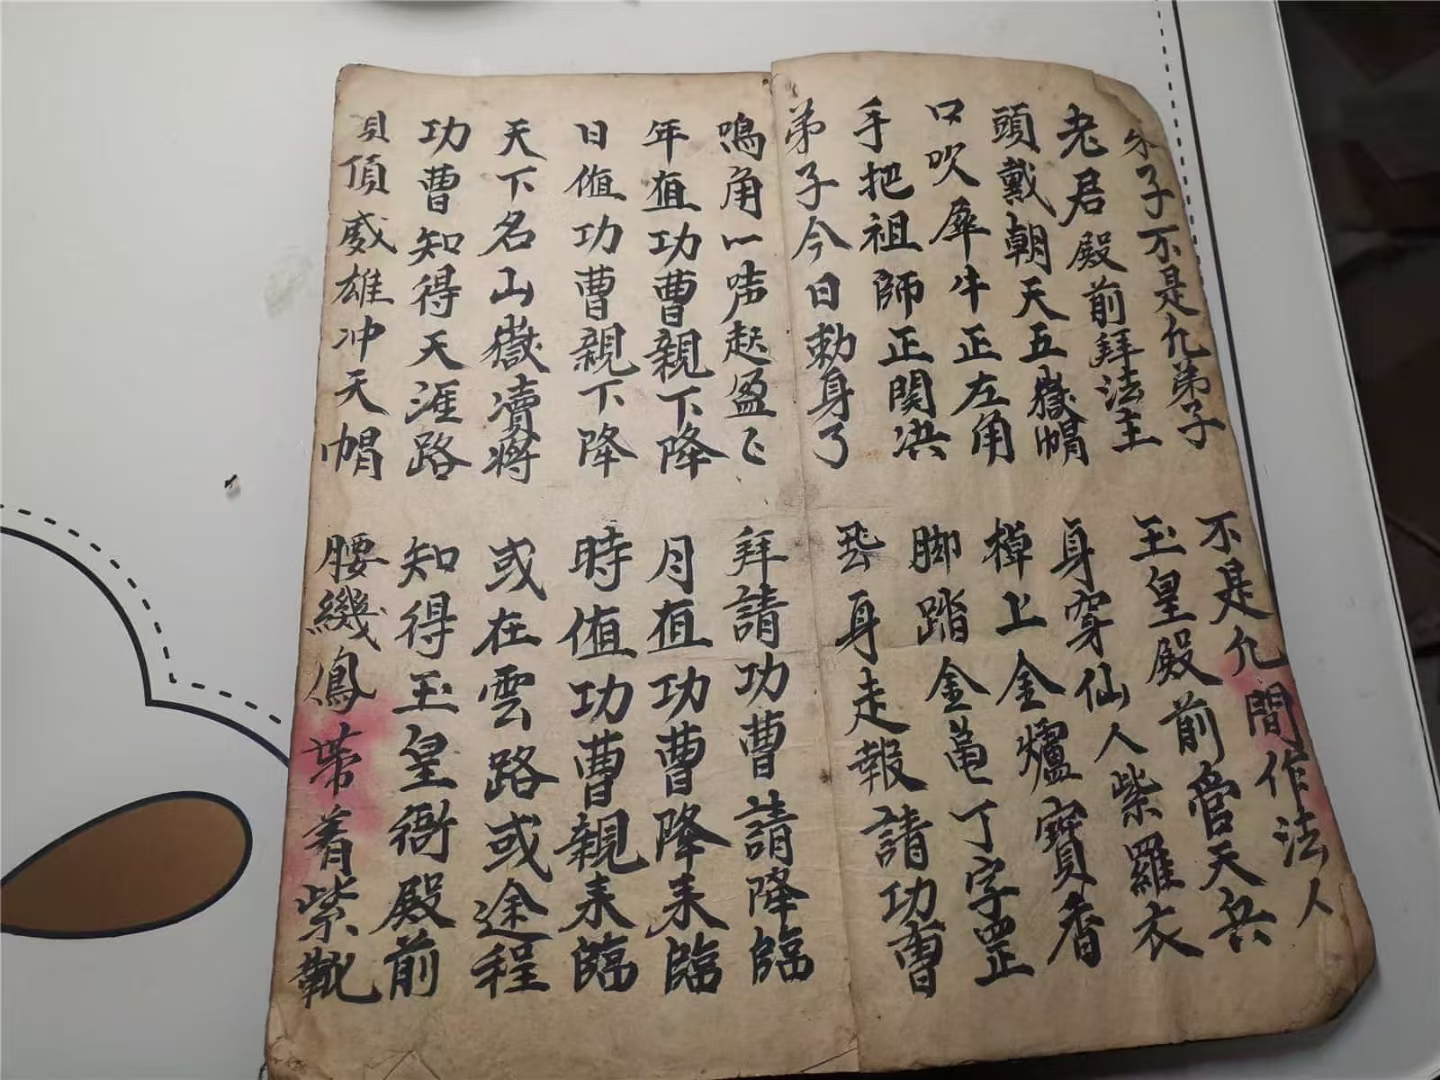 弟子不是凢弟子　不是凢間作法人
老君殿前拜法主　玉皇殿前管天兵
頭戴朝天五嶽帽　身穿仙人紫羅衣
口吹犀牛正左角　棹上金爐寳香
手把祖師正関洪　脚踏金亀丁字罡
弟子今日勅身了　身走報請功曹
鳴角一声起盈〻　拜請功曹請降臨
年值功曹親下降　月值功曹降来臨
日值功曹親下降　時值功曹親来臨
天下名山嶽瀆將　或在雲路或途程
功曹知得天涯路　知得玉皇衙殿前
頂威雄冲天帽　腰纔鳥帶着紫靴